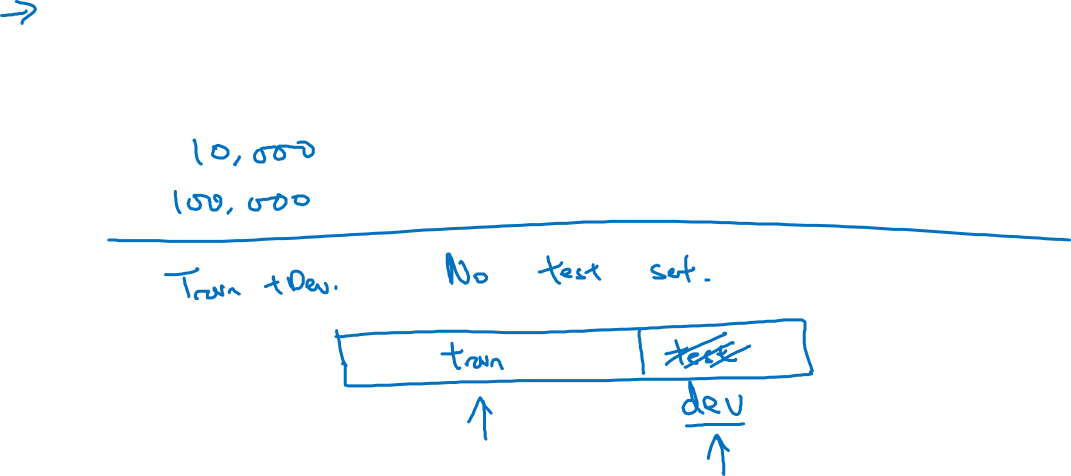 10,000
100,000
Train + Dev. No test set.
train test
dev